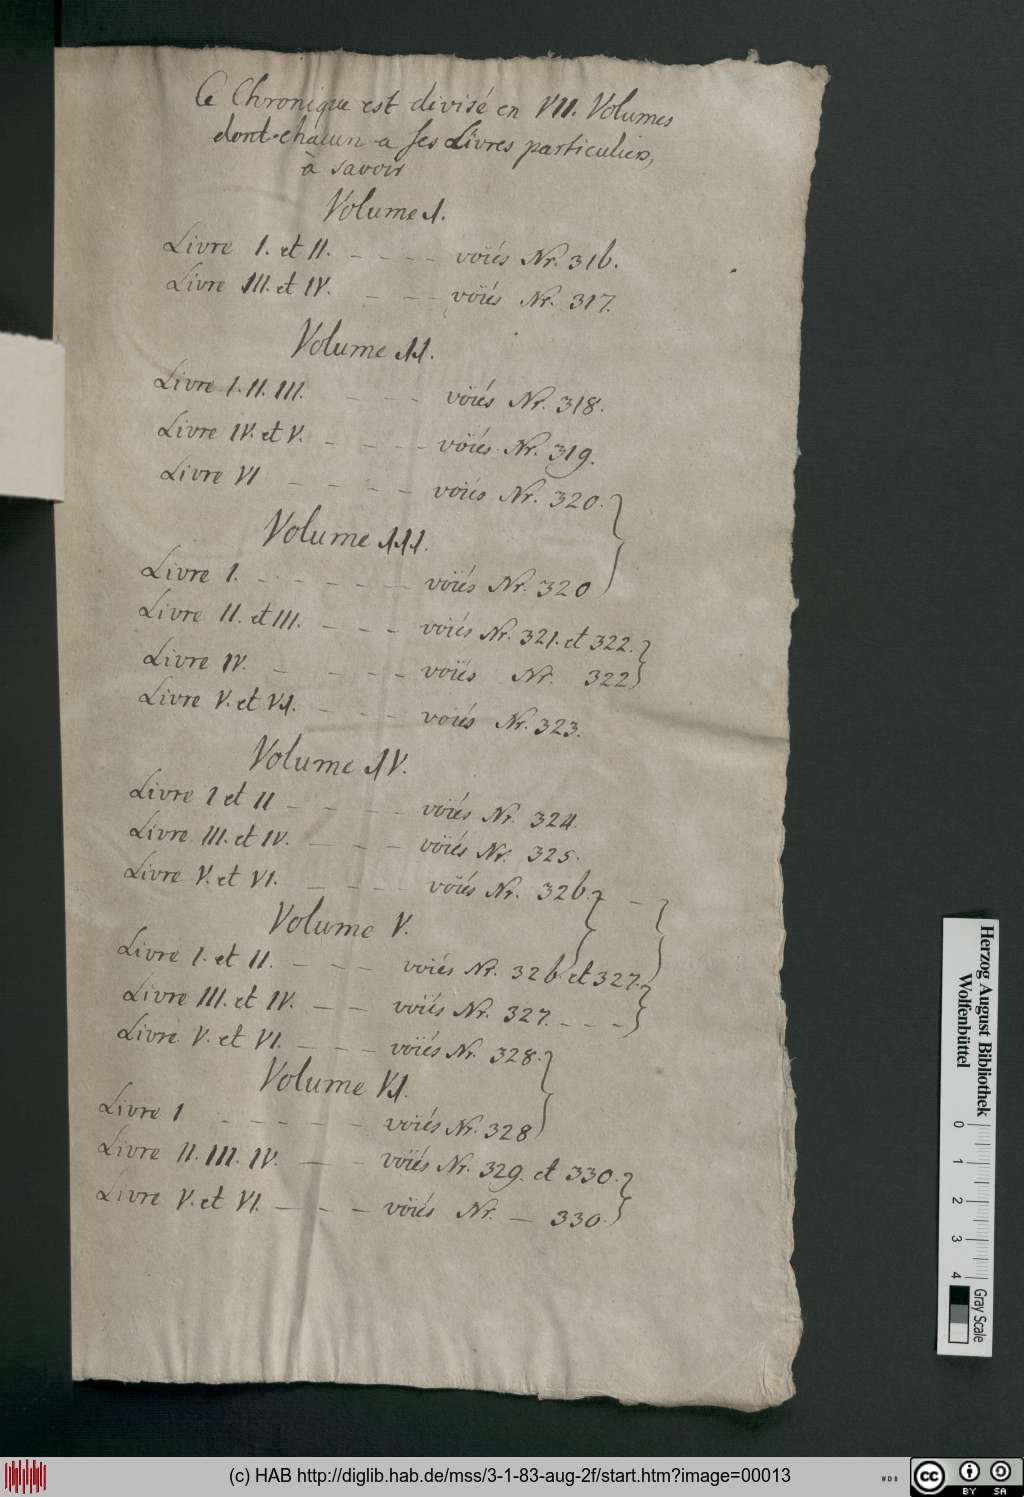 Ce Chronique est divisé en VII. Volumes
dont chacun a ses Livres particuliers,
à savoir
Volume I.
Livre I. et II. - - - - voïés Nr. 316.
Livre III. et IV. - - - voïés Nr. 317.
Volume II.
Livre I. II. III. - - - voïés Nr. 318.
Livre IV. et V. - - - - voïés Nr. 319.
Livre VI - - - - voïés Nr. 320. }
Volume III.
Livre I. - - - - - - voïés Nr. 320
Livre II. et III. - - - voïés Nr. 321. et 322. }
Livre IV. - - - - voïés Nr. 322
Livre V. et VI. - - - voïés Nr. 323.
Volume IV.
Livre I et II - - - - voïés Nr. 324.
Livre III. et IV. - - - voïés Nr. 325.
Livre V. et VI. - - - - voïés Nr. 326. } - }
Volume V.
Livre I. et II. - - - voïés Nr. 326 et 327. }
Livre III. et IV. - - voïés Nr. 327. - - -
Livre V. et VI. - - - voïés Nr. 328. }
Volume VI.
Livre I - - - - - - voïés Nr. 328
Livre II. III. IV. - - voïés Nr. 329. et 330. }
Livre V. et VI. - - - voïés Nr. - 330.
Herzog August Bibliothek
Wolfenbüttel
0 1 2 3 4
Gray Scale
(c) HAB http://diglib.hab.de/mss/3-1-83-aug-2f/start.htm?image=00013
WDB
cc
BY SA